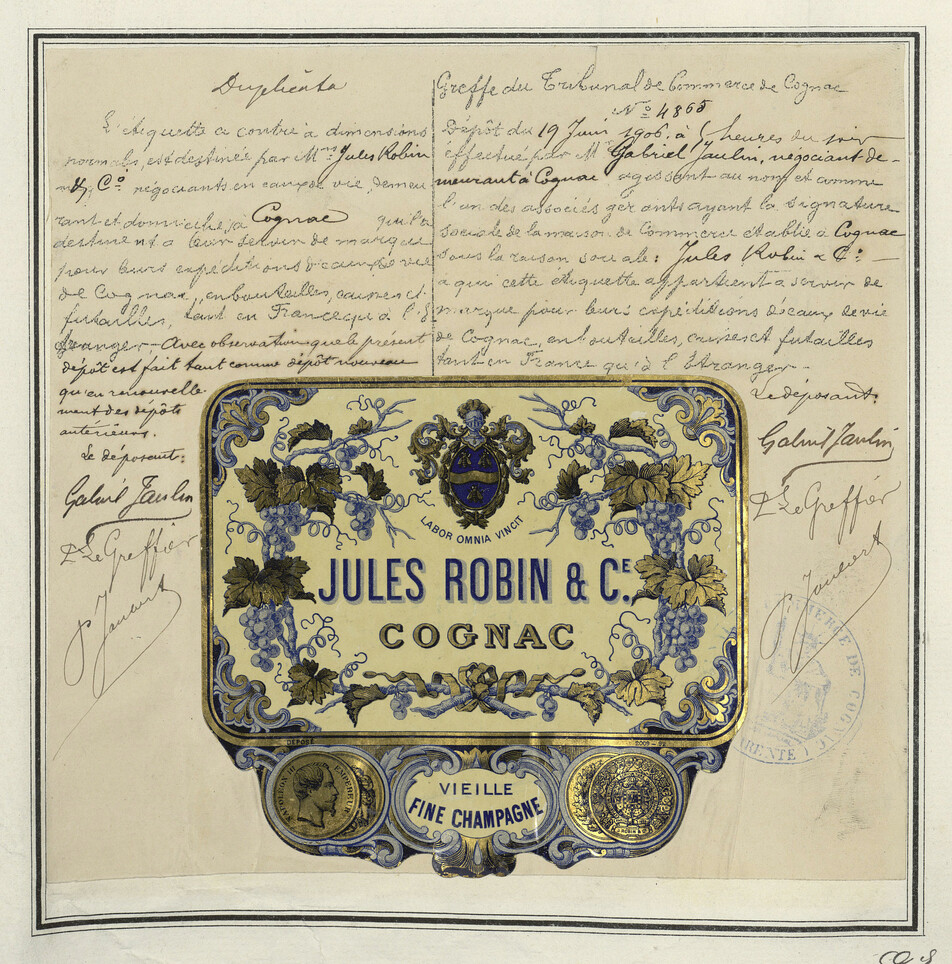 Duplicata
L'étiquette ci contre à dimensions
normales, est destinée par Mrs Jules Robin
& Co, négociants en eaux de vie, demeu
rant et domiciliés à Cognac qui la
destinent à leur servir de marque
pour leurs expéditions d'eaux de vie
de Cognac, en bouteilles, caisses et
futailles, tant en France qu'à l'É
tranger – Avec observation que le présent
dépôt est fait tant comme dépôt nouveau
qu'en renouvelle-
ment des dépôts
antérieurs.
Le déposant:
Gabriel Jaulin
P. Le Greffier
Greffe du Tribunal de Commerce de Cognac
No 4865
Dépôt du 19 Juin 1906, à 5 heures du soir
effectué par Mr Gabriel Jaulin, négociant de-
meurant à Cognac agissant au nom et comme
l'un des associés gérants ayant la signature
sociale de la maison de Commerce établie à Cognac
sous la raison sociale: Jules Robin & Co. –
à qui cette étiquette appartient à servir de
marque pour leurs expéditions d'eaux de vie
de Cognac, en bouteilles, caisses et futailles
tant en France qu'à l'Étranger –
Le déposant:
Gabriel Jaulin
P. Le Greffier
LABOR OMNIA VINCIT
JULES ROBIN & CE.
COGNAC
DÉPOSÉ
NAPOLEON III EMPEREUR
VIEILLE
FINE CHAMPAGNE
J. ROBIN & Co
COMMERCE DE COGNAC